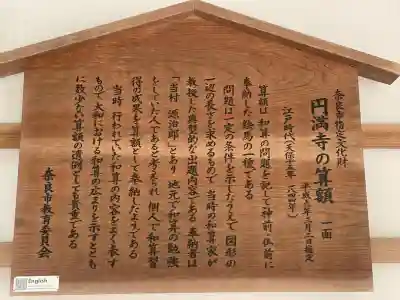 奈良市指定文化財
円満寺の算額 一面
江戸時代(天保十五年 一八四四年)
算額は和算の問題を記して神前・仏前に
奉納した絵馬の一種である
問題は一定の条件を示したうえで図形の
一辺の長さを求めるもので 当時の和算家が
教授した典型的な出題内容である 奉納者は
「当村 源治郎」とあり 地元で和算の勉強
をしていた人であると考えられ 個人で和算習
得の成果を算額として奉納したようである
当時 行われていた和算の内容をよく表す
もので 大和における和算の広まりを示すととも
に数少ない算額の遺例としても貴重である
奈良市教育委員会
English